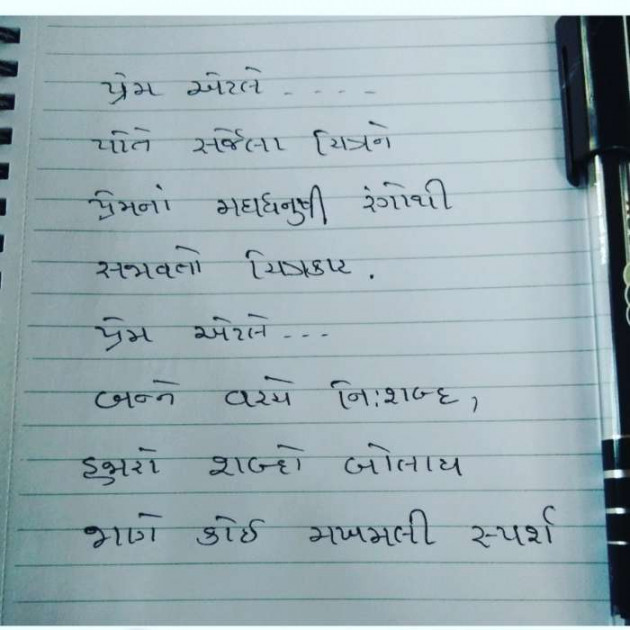 પ્રેમ એટલે ....
પોતે સર્જેલા ચિત્રને
પ્રેમનાં મેઘધનુષી રંગોથી
સજાવતો ચિત્રકાર.
પ્રેમ એટલે ...
બન્ને વચ્ચે નિ:શબ્દ,
હજારો શબ્દો બોલાય
જાણે કોઈ મખમલી સ્પર્શ